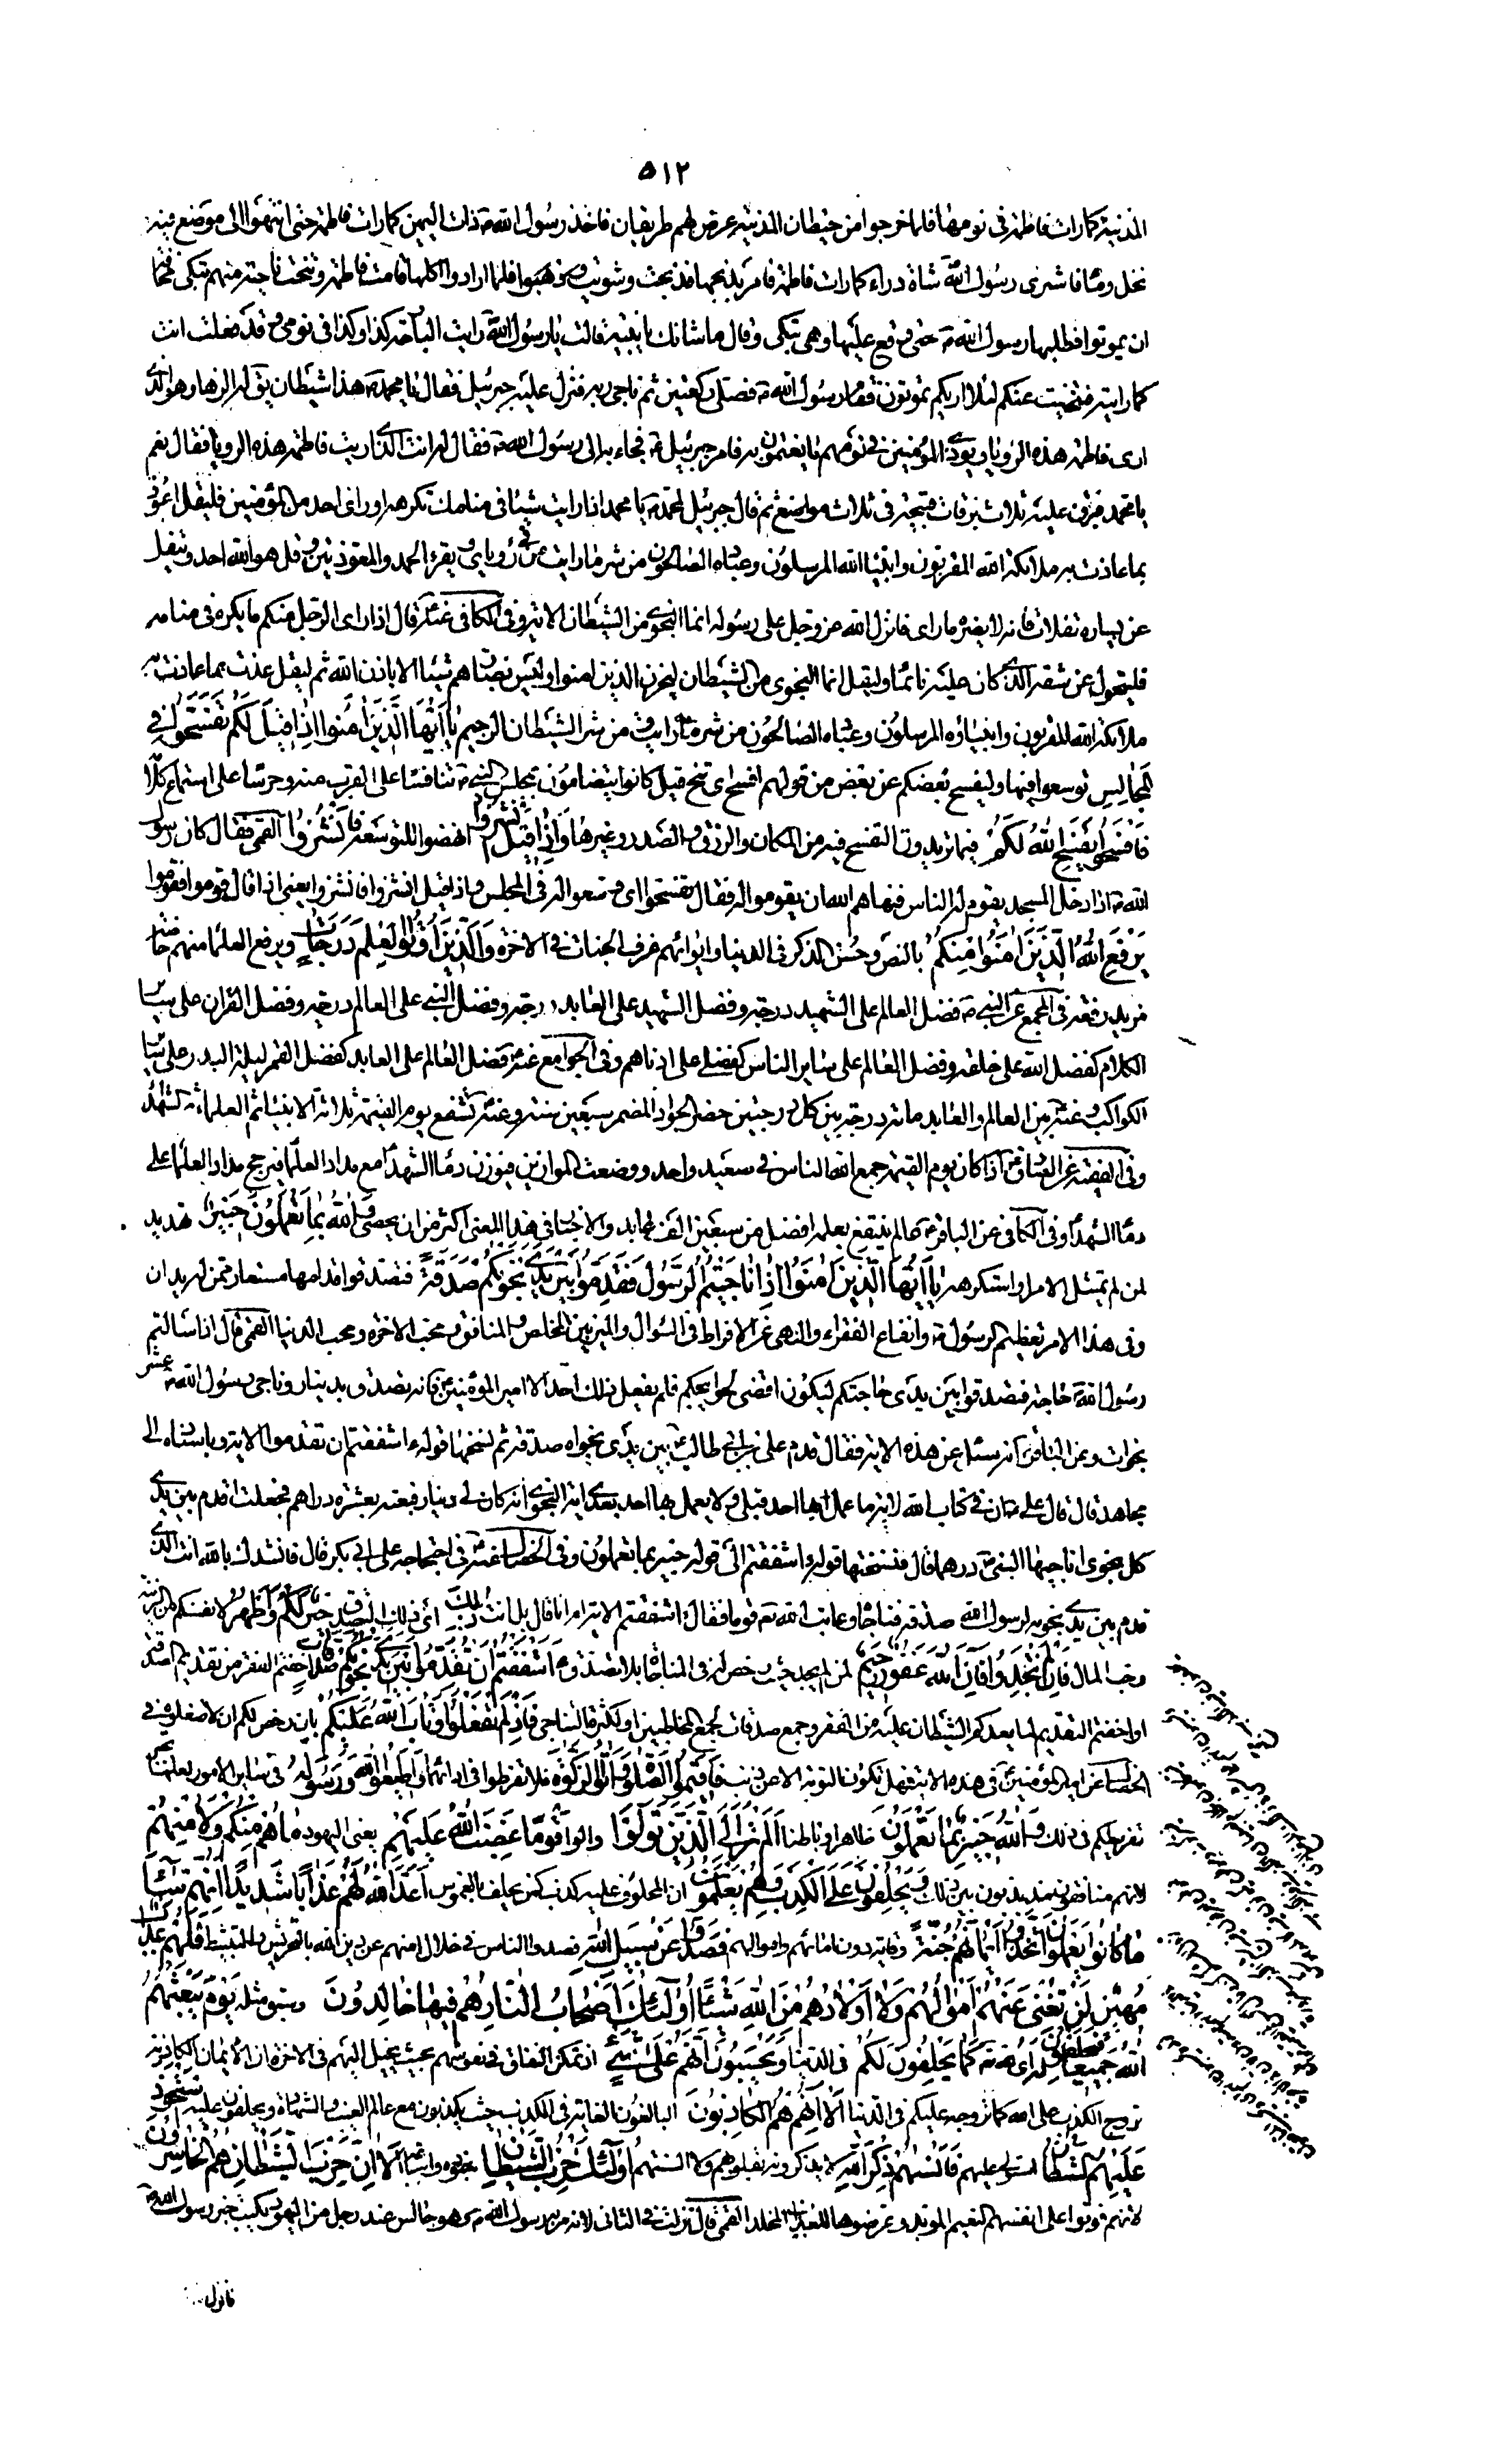 ٥١٢
المدينة كما رات فاطمة في نومها فلما خرجوا من حيطان المدينة عرض لهم طريقان فاخذ رسول الله ص ذات اليمين كما رات فاطمة حتى انتهوا الى موضع فيه
نخل وماء فاشترى رسول الله ص شاة ذراء كما رات فاطمة فامر بذبحها فذبحت وشويت فلما ارادوا اكلها قامت فاطمة وتنحت ناحية منهم تبكي مخافة
ان يموتوا فطلبها رسول الله ص حتى وقع عليها وهي تبكي وقال ما شانك يا بنية قالت يا رسول الله رايت البارحة كذا وكذا في نومي وقد فعلت انت
كما رايته فتنحيت عنكم لئلا اريكم تموتون فقام رسول الله ص فصلى ركعتين ثم ناجى ربه فنزل عليه جبرئيل فقال يا محمد ص هذا شيطان يق له الزها وهو الذي
ارى فاطمة هذه الرؤيا ويؤذي المؤمنين في نومهم ما يغتمون به فامر جبرئيل ع فجاء به الى رسول الله ص فقال له انت الذي اريت فاطمة هذه الرويا فقال نعم
يا محمد فبزق عليه ثلاث بزقات فشجه في ثلاث مواضع ثم قال جبرئيل لمحمد ص يا محمد اذا رايت شيئا في منامك تكرهه او راى احد من المؤمنين فليقل اعوذ
بما عاذت به ملائكة الله المقربون وانبياء الله المرسلون وعباده الصالحون من شر ما رايت من رؤياي ويقرء الحمد والمعوذتين وقل هو الله احد ويتفل
عن يساره تفلات فانه لا يضره ما راى فانزل الله عز وجل على رسوله انما النجوى من الشيطان الاية وفي الكافي عنه ع قال اذا راى الرجل منكم ما يكره في منامه
فليتحول عن شقه الذي كان عليه نائما وليقل انما النجوى من الشيطان ليحزن الذين امنوا وليس بضارهم شيئا الا باذن الله ثم ليقل عذت بما عاذت به
ملائكة الله المقربون وانبياؤه المرسلون وعباده الصالحون من شر ما رايت ومن شر الشيطان الرجيم يا ايها الذين امنوا اذا قيل لكم تفسحوا في
المجالس توسعوا فيها وليفسح بعضكم عن بعض من قولهم افسح اي تنح قيل كانوا يتضامون بمجلس النبي ص تنافسا على القرب منه وحرصا على استماع كلامه
فافسحوا يفسح الله لكم فيما تريدون التفسح فيه من المكان والرزق والصدر وغيرها واذا قيل انشزوا انهضوا للتوسعة فانشزوا القمي فقال كان رسول
الله ص اذا دخل المسجد يقوم له الناس فنهاهم الله ان يقوموا له فقال تفسحوا اي وسعوا له في المجلس واذا قيل انشزوا فانشزوا يعني اذا قال قوموا فقوموا
يرفع الله الذين امنوا منكم بالنصر وحسن الذكر في الدنيا وايوائهم غرف الجنات في الاخرة والذين اوتوا العلم درجات ويرفع العلماء منهم خاصة
مزيد رفعة في المجمع عن النبي ص فضل العالم على الشهيد درجة وفضل الشهيد على العابد درجة وفضل النبي على العالم درجة وفضل القران على ساير
الكلام كفضل الله على خلقه وفضل العالم على ساير الناس كفضلي على ادناهم وفي الجوامع عنه ص فضل العالم على العابد كفضل القمر ليلة البدر على ساير
الكواكب وعنه ص بين العالم والعابد مائة درجة بين كل درجتين حضر الجواد المضمر سبعين سنة وعنه ص تشفع يوم القيمة ثلاثة الانبياء ثم العلماء ثم الشهداء
وفي الفقيه عن الصادق ع اذا كان يوم القيمة جمع الله الناس في صعيد واحد ووضعت الموازين فيوزن دماء الشهداء مع مداد العلماء فيرجح مداد العلماء على
دماء الشهداء وفي الكافي عن الباقر ع عالم ينتفع بعلمه افضل من سبعين الف عابد والاخبار في هذا المعنى اكثر من ان يحصى والله بما تعملون خبير تهديد
لمن لم يمتثل الامر او استكرهه يا ايها الذين امنوا اذا ناجيتم الرسول فقدموا بين يدي نجويكم صدقة فتصدقوا قدامها مستعار ممن له يدان
وفي هذا الامر تعظيم الرسول ص وانفاع الفقراء والنهي عن الافراط في السؤال والميز بين المخلص والمنافق ومحب الاخرة ومحب الدنيا القمي قال اذا سالتم
رسول الله ص حاجة فتصدقوا بين يدي حاجتكم ليكون اقضى لحوايجكم فلم يفعل ذلك احد الا امير المؤمنين ع فانه تصدق بدينار وناجى رسول الله ص عشر
نجوات وعن الباقر ع انه سئل عن هذه الاية فقال قدم علي بن ابي طالب ع بين يدي نجواه صدقة ثم نسخها قوله ءاشفقتم ان تقدموا الاية وباسناده الى
مجاهد قال قال علي ع ان في كتاب الله لاية ما عمل بها احد قبلي ولا يعمل بها احد بعدي اية النجوى انه كان لي دينار فبعته بعشرة دراهم فجعلت اقدم بين يدي
كل نجوى اناجيها النبي ص درهما قال فنسختها قوله ءاشفقتم الى قوله خبير بما تعملون وفي الخصال عنه ع في احتجاجه على ابي بكر قال فانشدك بالله انت الذي
قدم بين يدي نجويه لرسول الله صدقة فناجاه وعاتب الله تع قوما فقال ءاشفقتم الاية ام انا قال بل انت ذلك اي ذلك التصدق خير لكم واطهر لانفسكم من الريبة
وحب المال فان لم تجدوا فان الله غفور رحيم لمن لم يجد حيث رخص له في المناجاة بلا تصدق ءاشفقتم ان تقدموا بين يدي نجويكم صدقات اخفتم الفقر من تقديم الصدقة
او اخفتم التقديم لما يعدكم الشيطان عليه من الفقر وجمع صدقات لجمع المخاطبين او لكثرة التناجي فاذ لم تفعلوا وتاب الله عليكم بان رخص لكم ان لا تفعلوه في
الخصال عن امير المؤمنين ع في هذه الاية فهل تكون التوبة الا عن ذنب فاقيموا الصلوة واتوا الزكوة فلا تفرطوا في ادائهما واطيعوا الله ورسوله في ساير الامور لعلها تجبر
تفريطكم في ذلك والله خبير بما تعملون ظاهرا وباطنا الم تر الى الذين تولوا والوا قوما غضب الله عليهم يعني اليهود ما هم منكم ولا منهم
لانهم منافقون مذبذبون بين ذلك ويحلفون على الكذب وهم يعلمون ان المحلوف عليه كذب كمن يحلف بالغموس اعد الله لهم عذابا شديدا انهم ساء
ما كانوا يعملون اتخذوا ايمانهم جنة وقاية دون دمائهم واموالهم فصدوا عن سبيل الله فصدوا الناس في خلال امنهم عن دين الله بالتحريش والتثبيط فلهم عذاب
مهين لن تغني عنهم اموالهم ولا اولادهم من الله شيئا اولئك اصحاب النار هم فيها خالدون وسبق مثله يوم يبعثهم
الله جميعا فيحلفون له اي لله تع كما يحلفون لكم في الدنيا ويحسبون انهم على شيء اذ تمكن النفاق في نفوسهم بحيث يخيل اليهم في الاخرة ان الايمان الكاذبة
تروج الكذب على الله كما تروجه عليكم في الدنيا الا انهم هم الكاذبون البالغون الغاية في الكذب حيث يكذبون مع عالم الغيب والشهادة ويحلفون عليه استحوذ
عليهم الشيطان استولى عليهم فانسيهم ذكر الله لا يذكرونه بقلوبهم ولا السنتهم اولئك حزب الشيطان جنوده واتباعه الا ان حزب الشيطان هم الخاسرون
لانهم فوتوا على انفسهم النعيم المؤبد وعرضوها للعذاب المخلد القمي قال نزلت في الثاني لانه مر به رسول الله ص وهو جالس عند رجل من اليهود يكتب خبر رسول الله ص
فانزل